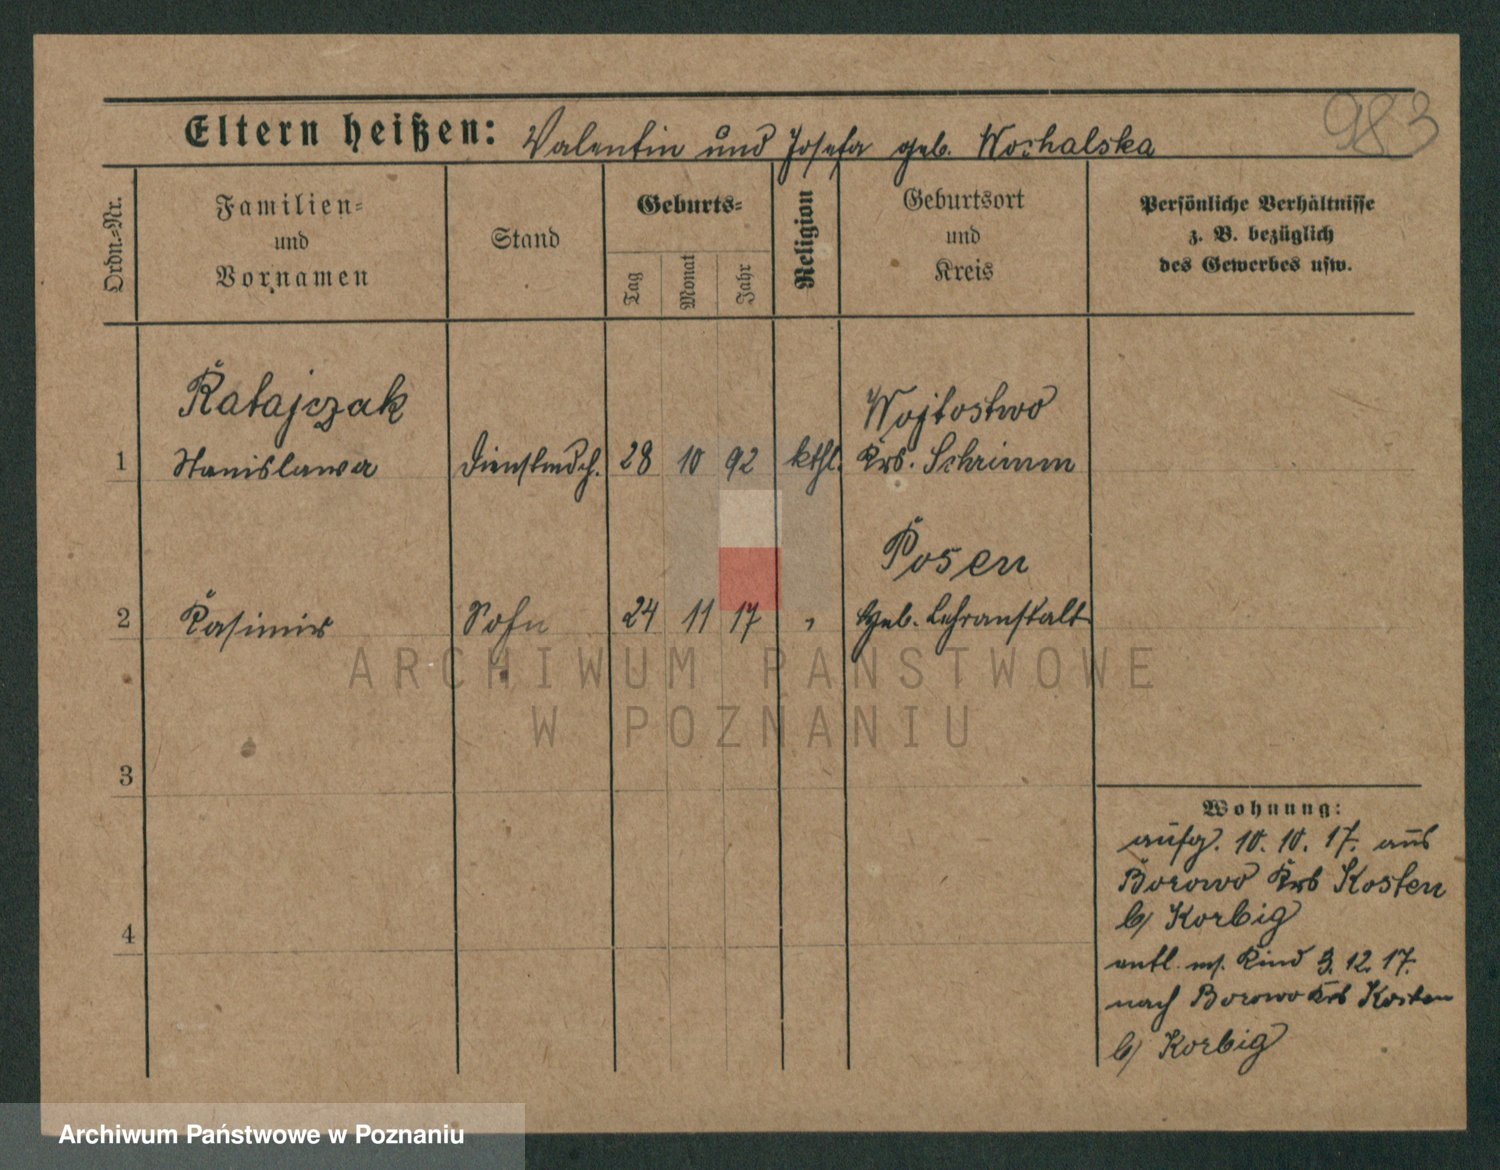 983
Eltern heißen: Valentin und Josefa geb. Wochalska
Ordn.-Nr.
Familien-
und
Vornamen
Stand
Geburts-
Tag
Monat
Jahr
Religion
Geburtsort
und
Kreis
Persönliche Verhältnisse
z. B. bezüglich
des Gewerbes usw.
Ratajczak
Wojtostwo
1 Stanislawa Dienstmdch. 28 10 92 kthl. Krs. Schrimm
Posen
2 Kasimir Sohn 24 11 17 " Heb. Lehranstalt
ARCHIWUM PAŃSTWOWE
W POZNANIU
3
4
Wohnung:
aufg. 10. 10. 17. aus
Borowo Krs Kosten
b/ Korbig
entl. m. Kind 3. 12. 17.
nach Borowo Krs Kosten
b/ Korbig
Archiwum Państwowe w Poznaniu